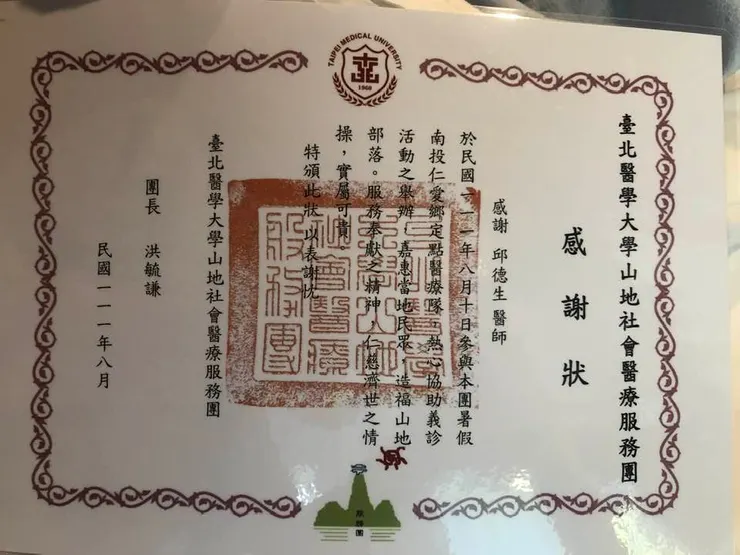 TAIPEI MEDICAL UNIVERSITY
1960
臺北醫學大學山地社會醫療服務團
感謝狀
感謝 邱德生 醫師
於民國一一一年八月十日參與本團暑假
南投仁愛鄉定點醫療隊，熱心協助義診
活動之舉辦，嘉惠當地民眾，造福山地
部落。服務奉獻之精神，仁慈濟世之情
操，實屬可貴。
特頒此狀以表謝忱
臺北醫學大學山地社會醫療服務團
團長 洪毓謙
民國一一一年八月